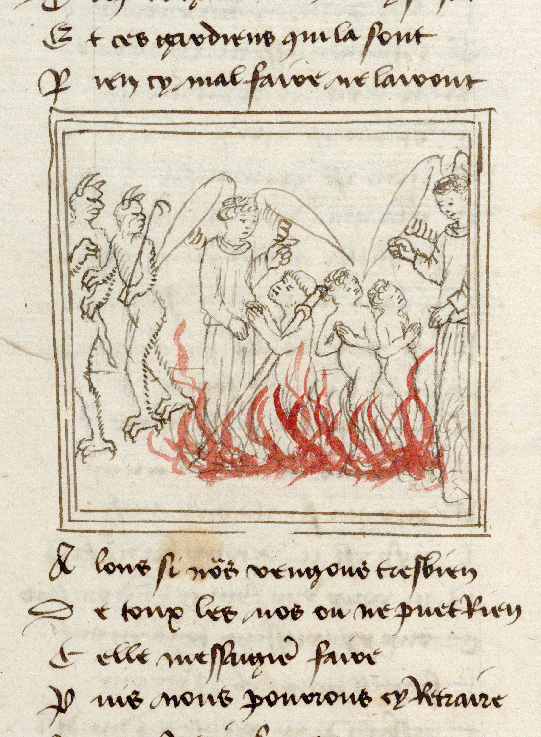 E t ces gardiens qui la sont
R ien cy mal faire ne lairont
A lons si nos vengons tresbien
D e toux les nos ou ne puet Rien
C elle messagiere faire
P uis nous pourrons cy Retraire